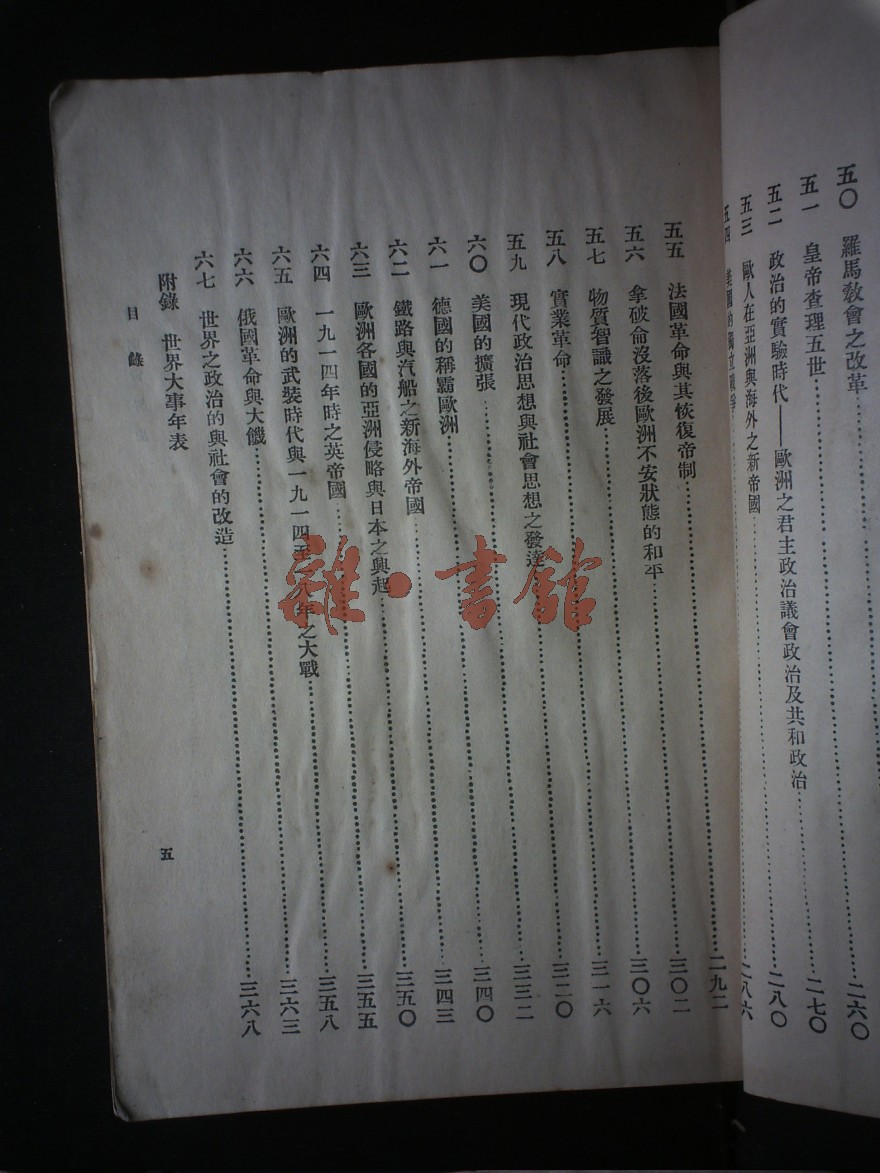 五〇　羅馬教會之改革……
五一　皇帝查理五世……二六〇
五二　政治的實驗時代——歐洲之君主政治議會政治及共和政治……二七〇
五三　歐人在亞洲與海外之新帝國……二八〇
五四　美國的獨立戰爭……二八六
五五　法國革命與其恢復帝制……二九二
五六　拿破侖沒落後歐洲不安狀態的和平……三〇二
五七　物質智識之發展……三〇六
五八　實業革命……三一六
五九　現代政治思想與社會思想之發達……三二〇
六〇　美國的擴張……三三二
六一　德國的稱霸歐洲……三四〇
六二　鐵路與汽船之新海外帝國……三四三
六三　歐洲各國的亞洲侵略與日本之興起……三五〇
六四　一九一四年時之英帝國……三五五
六五　歐洲的武裝時代與一九一四至一八年之大戰……三五八
六六　俄國革命與大饑……三六三
六七　世界之政治的與社會的改造……三六八
附錄　世界大事年表
目錄
五
雜·書館